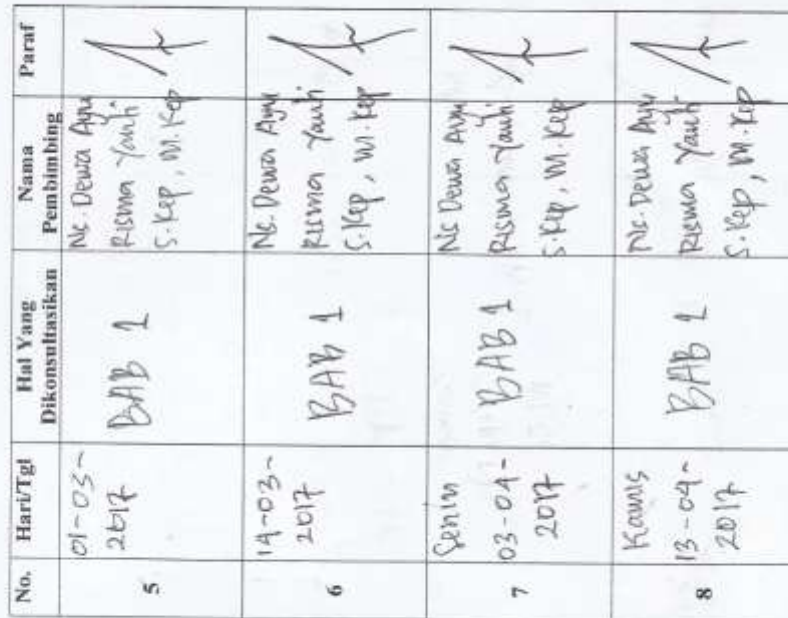 No.
Hari/Tgl
Hal Yang
Dikonsultasikan
Nama
Pembimbing
Paraf
5
01-03-
2017
BAB 1
Ns. Dewa Ayu
Risma Yanti
S.Kep, M.Kep
6
14-03-
2017
BAB 1
Ns. Dewa Ayu
Risma Yanti
S.Kep, M.Kep
7
Senin
03-04-
2017
BAB 1
Ns Dewa Ayu
Risma Yanti
S.Kep, M.Kep
8
Kamis
13-04-
2017
BAB 1
Ns. Dewa Ayu
Risma Yanti
S.Kep, M.Kep